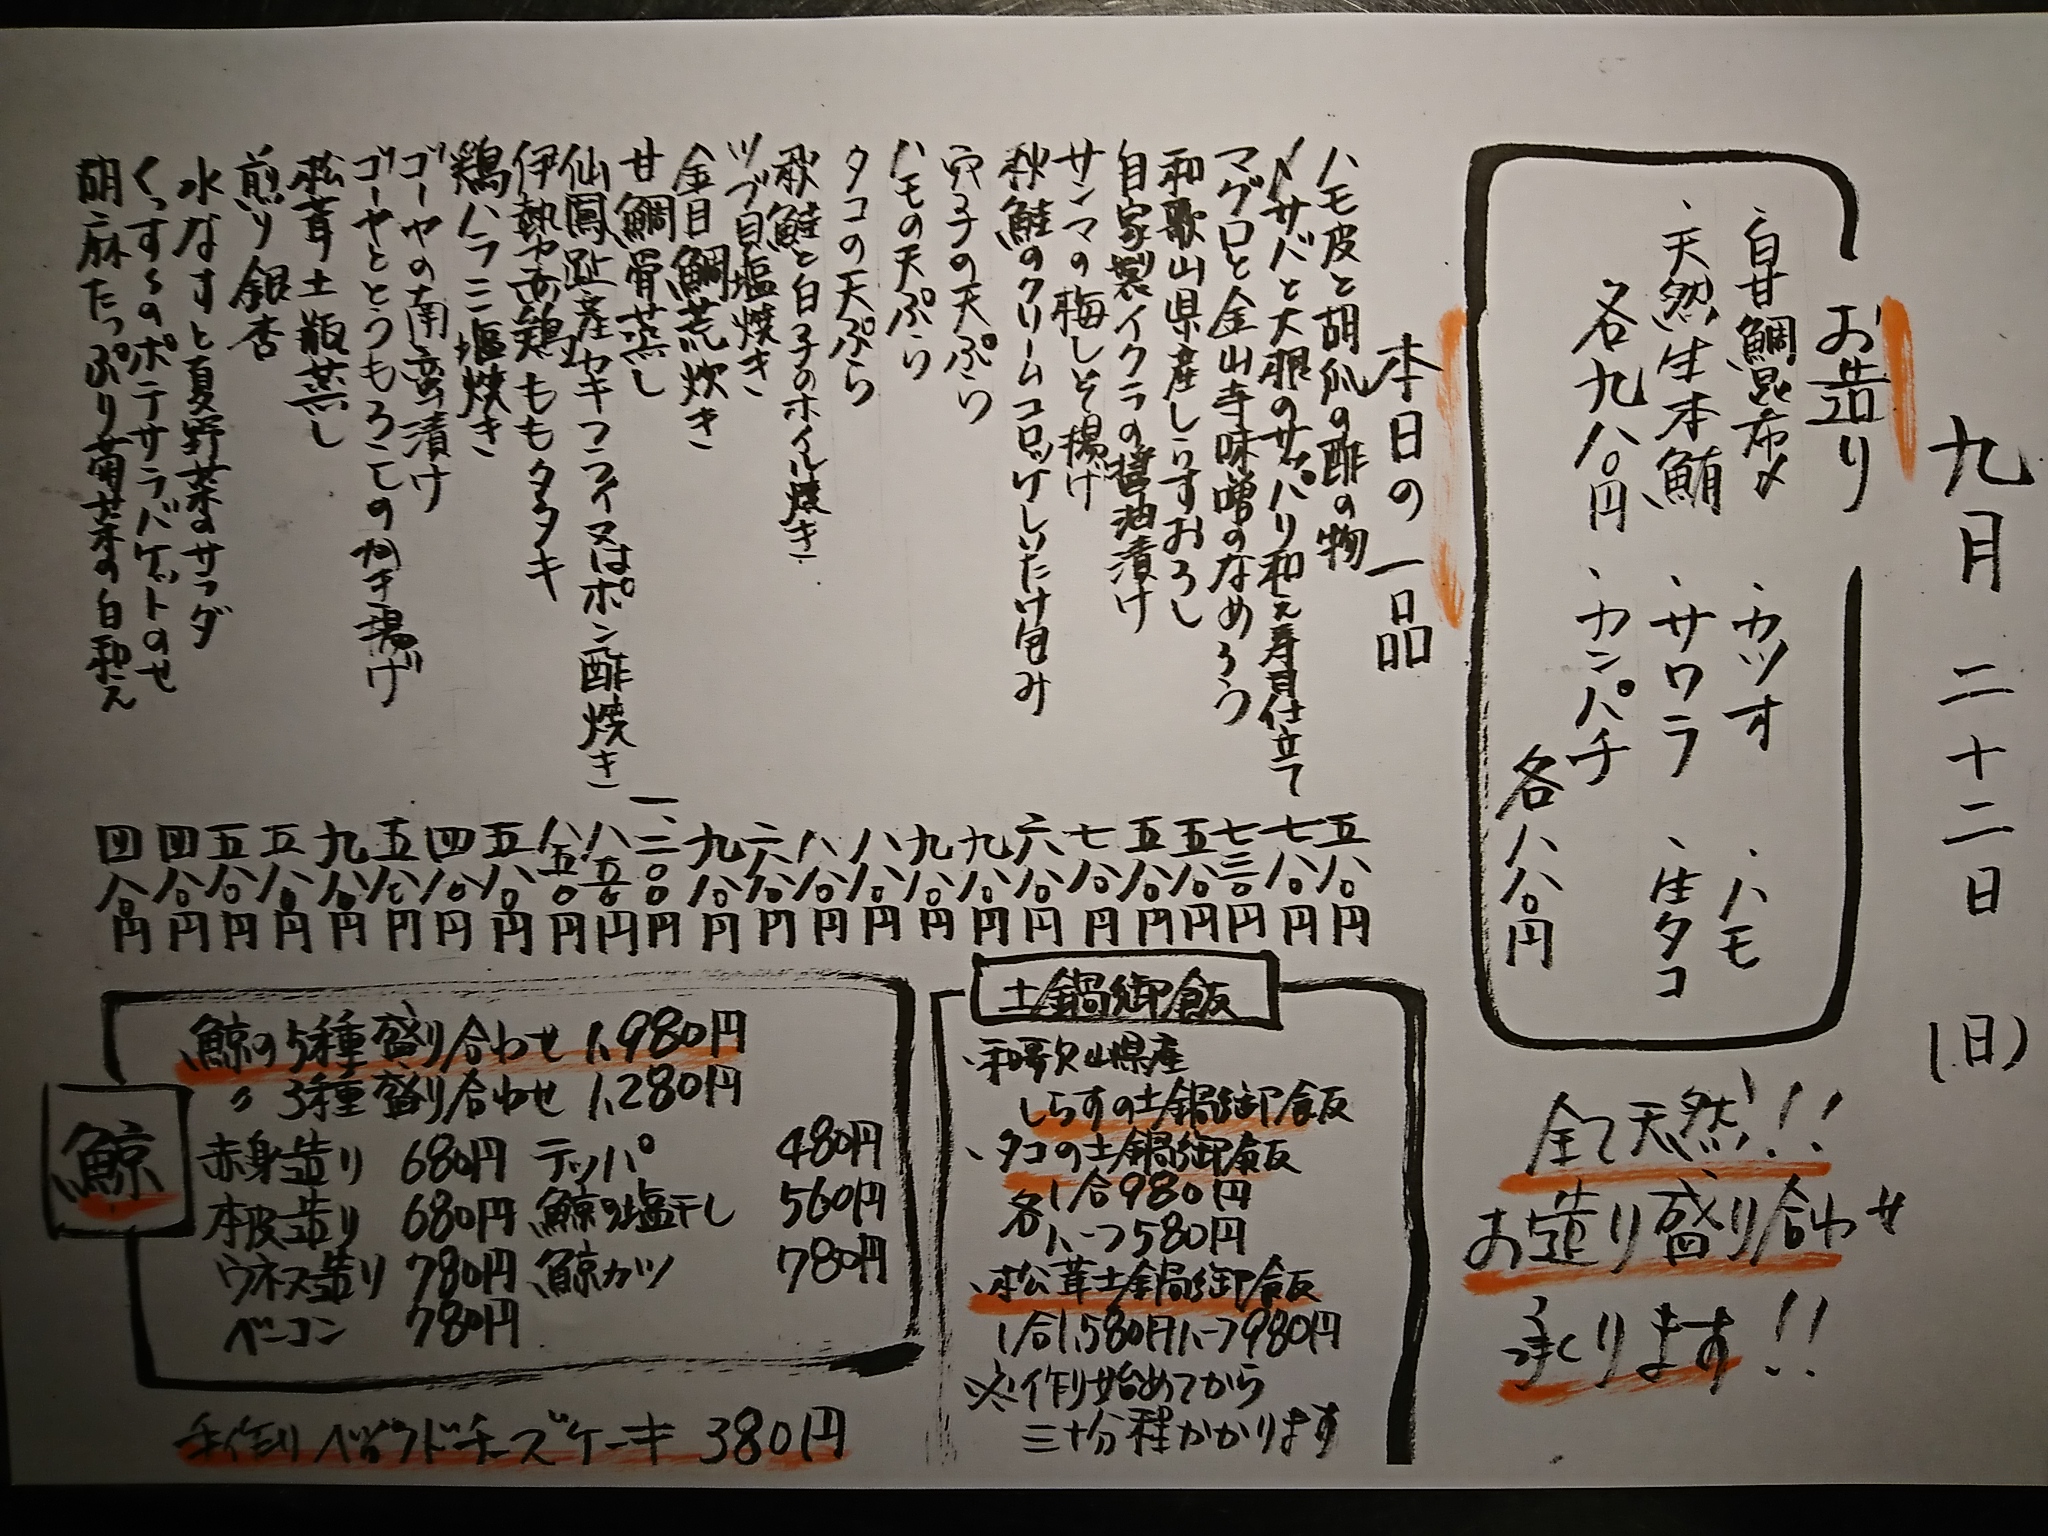 九月二十二日(日)
お造り
、白甘鯛昆布〆
、天然生本鮪
各九八〇円
、カツオ
、サワラ
、カンパチ
、ハモ
、生タコ
各八八〇円
全て天然!!
お造り盛り合わせ
承ります!!
本日の一品
ハモ皮と胡瓜の酢の物 五八〇円
〆サバと大根のサッパリ和え寿司仕立て 七八〇円
マグロと金山寺味噌のなめろう 七三〇円
和歌山県産しらすおろし 五八〇円
自家製イクラの醤油漬け 五八〇円
サンマの梅しそ揚げ 七八〇円
秋鮭のクリームコロッケしいたけ包み 六八〇円
穴子の天ぷら 九八〇円
ハモの天ぷら 九八〇円
タコの天ぷら 八八〇円
秋鮭と白子のホイル焼き 八八〇円
ツブ貝塩焼き 六八〇円
金目鯛荒炊き 九八〇円
甘鯛骨蒸し 一、二〇〇円
仙鳳趾産カキフライ又はポン酢焼き 八五〇円
伊勢赤鶏ももタタキ 八五〇円
鶏ハラミ塩焼き 五八〇円
ゴーヤの南蛮漬け 四八〇円
ゴーヤととうもろこしのかき揚げ 五八〇円
松茸土瓶蒸し 九八〇円
煎り銀杏 五八〇円
水なすと夏野菜のサラダ 五八〇円
くっすーのポテサラバケットのせ 四八〇円
胡麻たっぷり菊菜の白和え 四八〇円
土鍋御飯
、和歌山県産
しらすの土鍋御飯
、タコの土鍋御飯
各1合980円
ハーフ580円
、松茸土鍋御飯
1合1,580円ハーフ980円
※作り始めてから
三十分程かかります
鯨
、鯨の5種盛り合わせ 1,980円
〃3種盛り合わせ 1,280円
赤身造り 680円 テッパ 480円
本皮造り 680円 鯨の塩干し 560円
ウネス造り 780円 鯨カツ 780円
ベーコン 780円
手作りベイクドチーズケーキ 380円